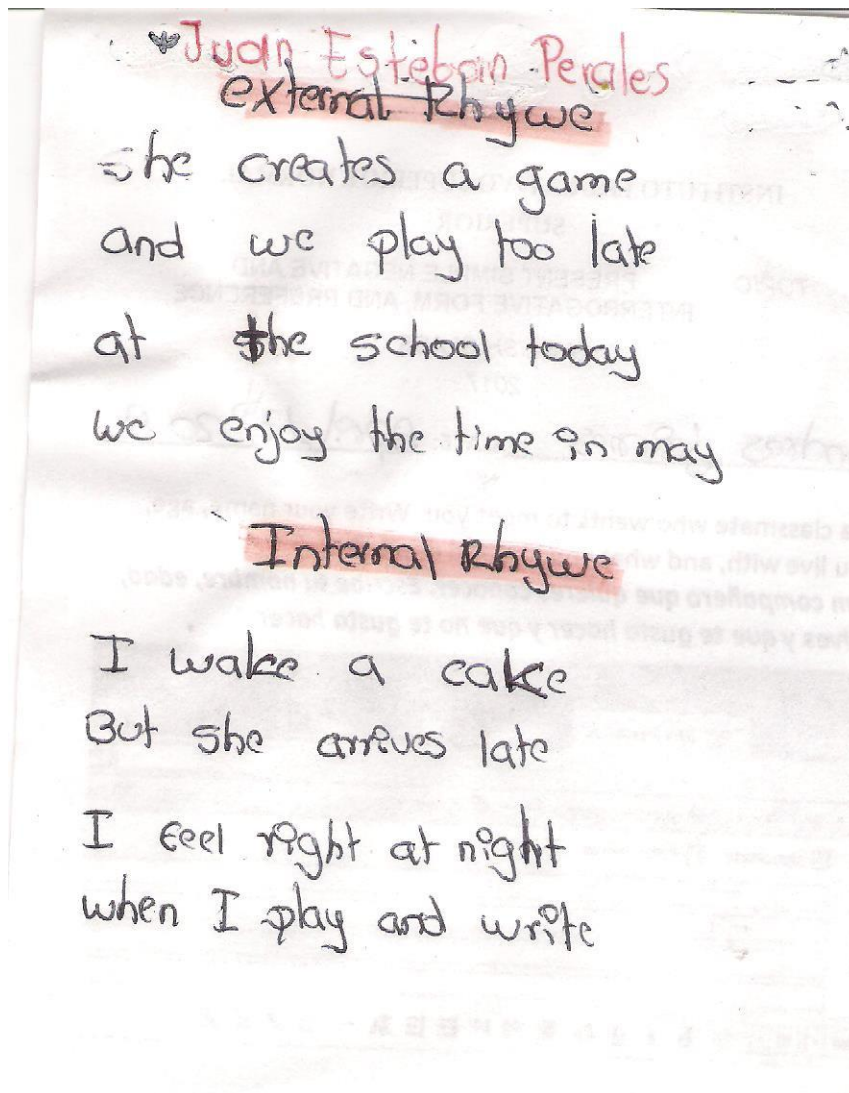 Juan Esteban Perales
external Rhywe
she creates a game
and we play too late
at the school today
we enjoy the time in may
Internal Rhywe
I wake a cake
But she arrives late
I feel right at night
when I play and write